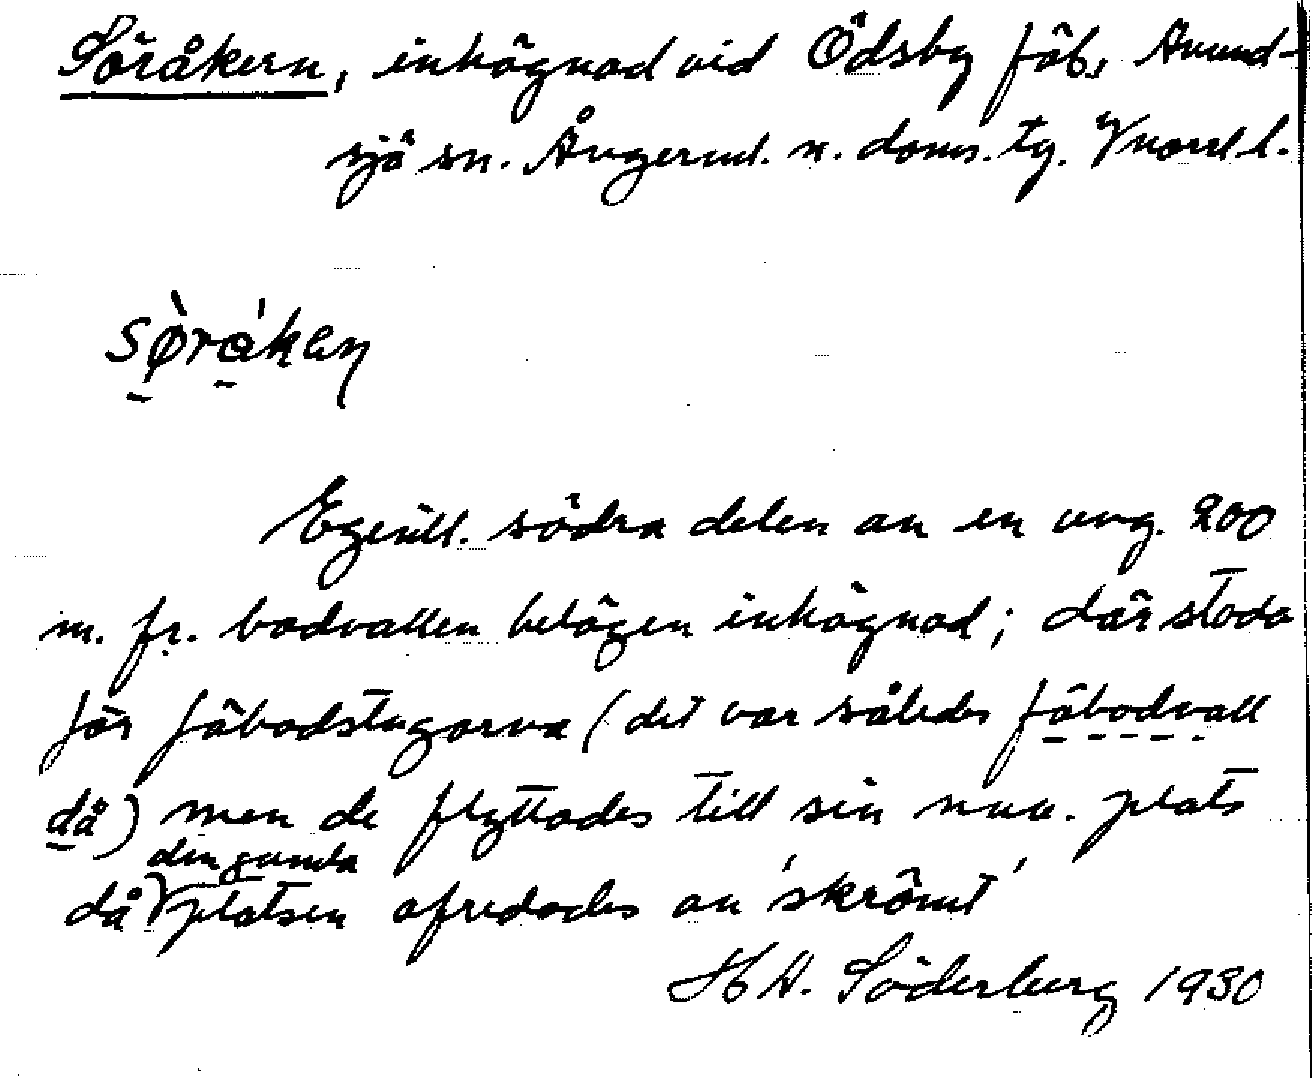 Söråkern, inhägnad vid Ödsby fäb., Anund-
sjö sn. Ångerml. n. doms. tg. Vnorrl l.
sø̀rǻken
Egentl. södra delen av en ung. 200
m. fr. bodvallen belägen inhägnad; där stodo
förr fäbodstugorna (det var således fäbodvall
då) men de flyttades till sin nuv. plats
då den gamla platsen ofredades av 'skrömt'
H W. Söderberg 1930